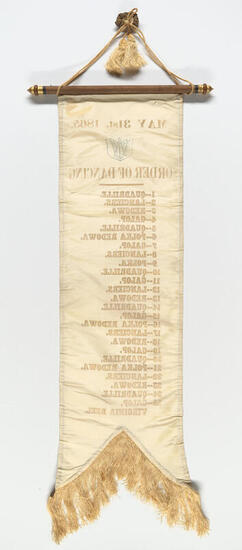 MAY 31st, 1865.
ORDER OF DANCING
1--QUADRILLE.
2--LANCIERS.
3--REDOWA.
4--GALOP.
5--QUADRILLE.
6--POLKA REDOWA.
7--GALOP.
8--LANCIERS.
9--POLKA.
10--QUADRILLE.
11--GALOP.
12--LANCIERS.
13--REDOWA.
14--QUADRILLE.
15--GALOP.
16--POLKA REDOWA.
17--LANCIERS.
18--REDOWA.
19--GALOP.
20--QUADRILLE.
21--POLKA REDOWA.
22--LANCIERS.
23--REDOWA.
VIRGINIA REEL.